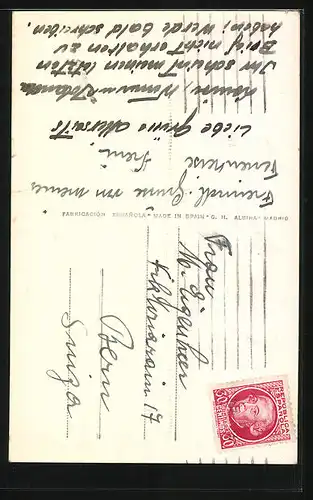 Freundl. Grüsse von meiner
Ferienreise
Irene.
Liebe Grüsse allerseits
Ihr scheint meinen letzten
Brief nicht erhalten zu
haben; werde bald schreiben.
FABRICACIÓN ESPAÑOLA - MADE IN SPAIN - G. H. ALSINA - MADRID
Frau
M. Eigenheer
Viktoriarain 17
Bern
Suiza
REPUBLICA
ESPAÑOLA
30
30